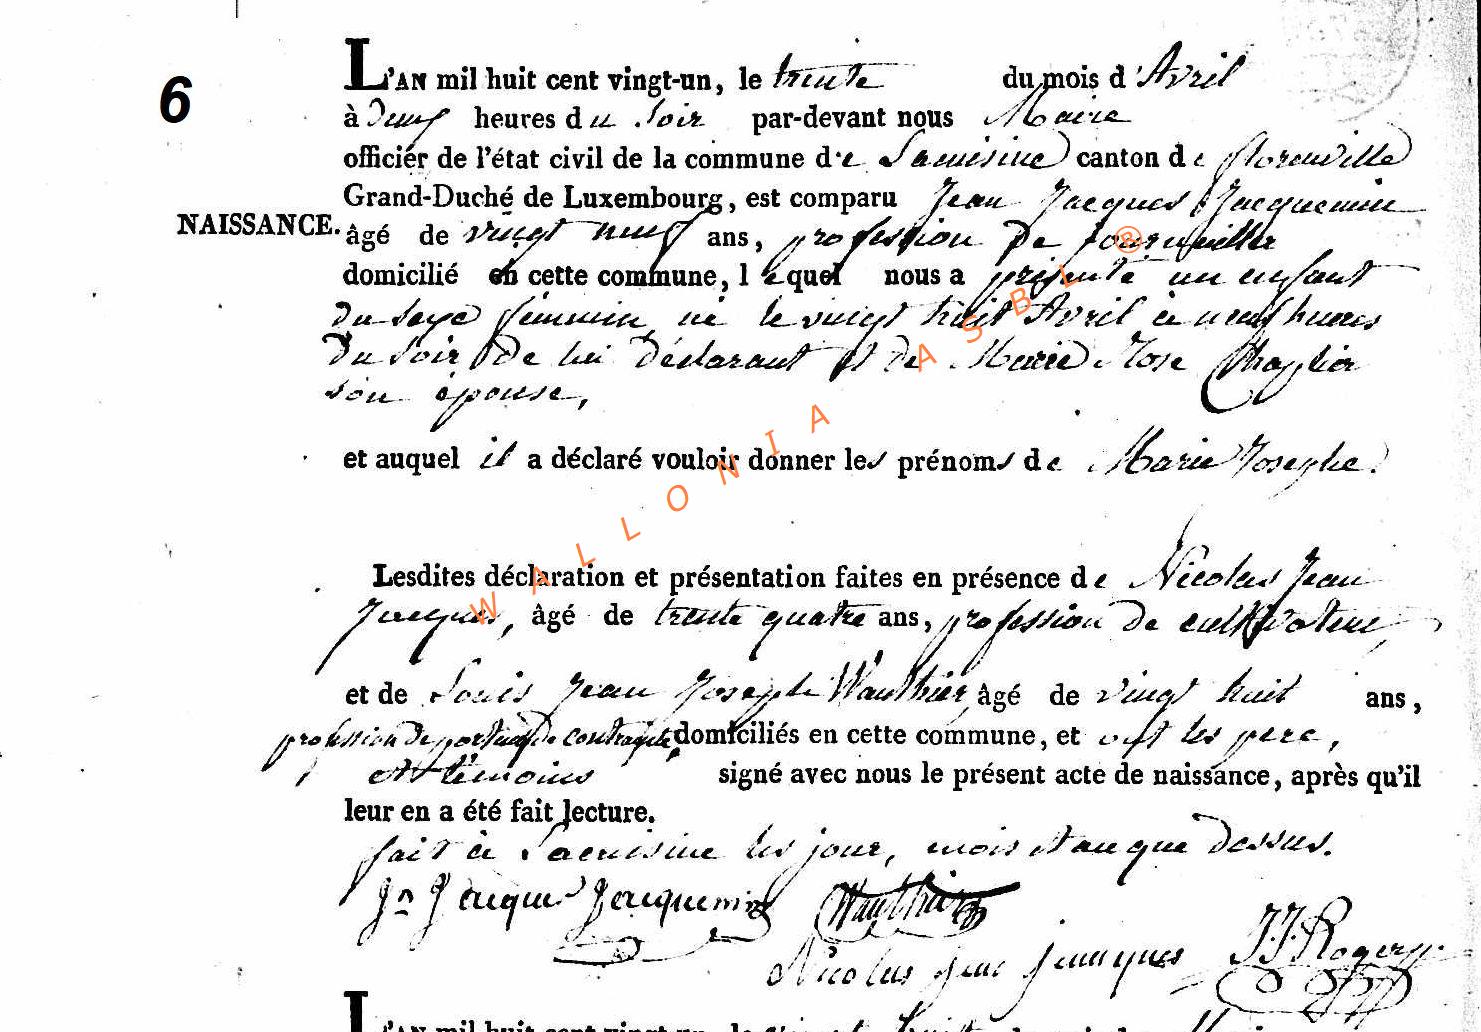 L'AN mil huit cent vingt-un, le trente du mois d'Avril
6
à deux heures du soir par-devant nous Maire
officier de l'état civil de la commune de Lacuisine canton de florenville
Grand-Duché de Luxembourg, est comparu Jean Jacques Jacquemin
NAISSANCE.
âgé de vingt neuf ans, profession de
domicilié en cette commune, lequel nous a présenté un enfant
du sexe féminin, né le vingt huit Avril à neuf heures
du soir de lui déclarant et de Marie Rose
son épouse,
et auquel il a déclaré vouloir donner les prénoms de Marie Josephe.
Lesdites déclaration et présentation faites en présence de Nicolas Jean
Jacques, âgé de trente quatre ans, profession de cultivateur,
et de Louis Jean Joseph Wauthier, âgé de vingt huit ans,
profession de porteur de contrainte, domiciliés en cette commune, et ont les pere,
et témoins signé avec nous le présent acte de naissance, après qu'il
leur en a été fait lecture.
fait à Lacuisine les jour, mois et an que dessus.
Jn Jacque Jacquemin Wauthier
Nicolas Jean Jacques J.J. Rogery
L'AN mil huit cent vingt-un, le
WALLONIA ASBL ®